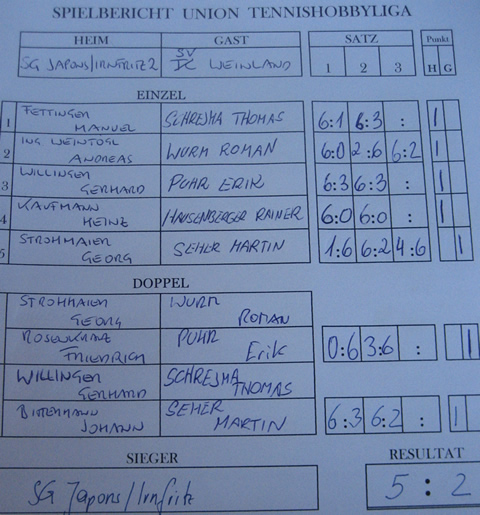 SPIELBERICHT UNION TENNISHOBBYLIGA
HEIM GAST SATZ Punkt
1 2 3 H G
SG JAPONS/IRNFRITZ 2 SV TC WEINLAND
EINZEL
1 FETTINGER MANUEL SCHREJMA THOMAS 6:1 6:3 : 1
2 ING WEINTÖGL ANDREAS WURM ROMAN 6:0 2:6 6:2 1
3 WILLINGER GERHARD PUHR ERIK 6:3 6:3 : 1
4 KAUFMANN HEINZ HAUSENBERGER RAINER 6:0 6:0 : 1
5 STROHMAIER GEORG SEHER MARTIN 1:6 6:2 4:6 1
DOPPEL
STROHMAIER GEORG WURM ROMAN
ROSENKRANZ FRIEDRICH PUHR Erik 0:6 3:6 : 1
WILLINGER GERHARD SCHREJMA THOMAS
JOHANN SEHER MARTIN 6:3 6:2 : 1
SIEGER RESULTAT
SG Japons/Irnfritz 5 : 2